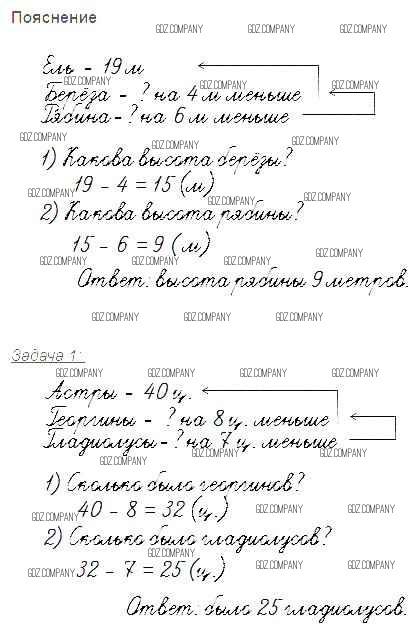 Пояснение
GDZ.COMPANY GDZ.COMPANY GDZ.COMPANY
Ель - 19 м
GDZ.COMPANY GDZ.COMPANY GDZ.COMPANY
Берёза - ? на 4 м меньше
Рябина - ? на 6 м меньше
GDZ.COMPANY GDZ.COMPANY GDZ.COMPANY
1) Какова высота берёзы?
19 - 4 = 15 (м)
GDZ.COMPANY GDZ.COMPANY GDZ.COMPANY
2) Какова высота рябины?
GDZ.COMPANY GDZ.COMPANY
15 - 6 = 9 (м)
GDZ.COMPANY GDZ.COMPANY GDZ.COMPANY
Ответ: высота рябины 9 метров.
GDZ.COMPANY GDZ.COMPANY GDZ.COMPANY
Задача 1:
GDZ.COMPANY GDZ.COMPANY GDZ.COMPANY
Астры - 40 ц.
Георгины - ? на 8 ц. меньше
GDZ.COMPANY GDZ.COMPANY GDZ.COMPANY
Гладиолусы - ? на 7 ц. меньше
GDZ.COMPANY GDZ.COMPANY GDZ.COMPANY
1) Сколько было георгинов?
40 - 8 = 32 (ц.)
GDZ.COMPANY GDZ.COMPANY GDZ.COMPANY
2) Сколько было гладиолусов?
GDZ.COMPANY
32 - 7 = 25 (ц.)
GDZ.COMPANY GDZ.COMPANY GDZ.COMPANY
Ответ: было 25 гладиолусов.